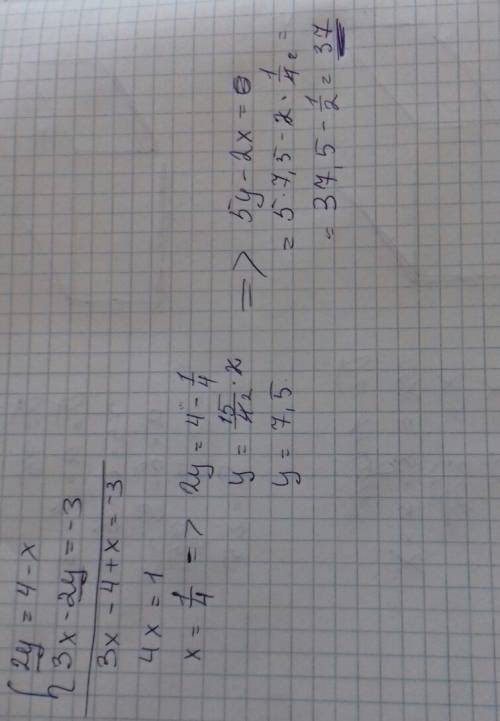 { 2y = 4 - x
3x - 2y = -3
3x - 4 + x = -3
4x = 1
x = 1/4 => 2y = 4 - 1/4
y = 15/4 · 2
y = 7,5
=> 5y - 2x =
= 5·7,5 - 2 · 1/4 =
= 37,5 - 1/2 = 37